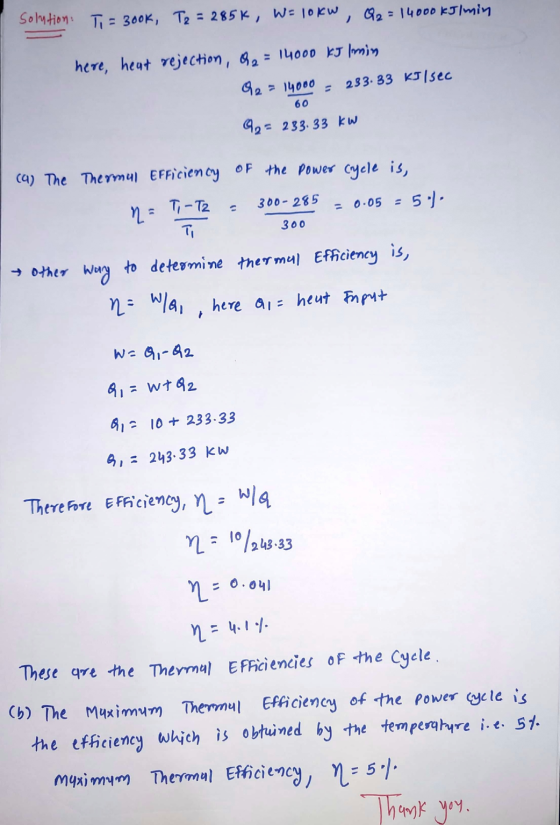 Solution: T1 = 300K, T2 = 285K, W = 10 KW, Q2 = 14000 KJ/min
here, heat rejection, Q2 = 14000 KJ/min
Q2 = 14000/60 = 233.33 KJ/sec
Q2 = 233.33 KW
(a) The Thermal Efficiency OF the Power Cycle is,
η = T1-T2/T1 = 300-285/300 = 0.05 = 5 %.
→ Other way to determine thermal Efficiency is,
η = W/Q1, here Q1 = heat Input
W = Q1-Q2
Q1 = W+Q2
Q1 = 10 + 233.33
Q1 = 243.33 KW
Therefore Efficiency, η = W/Q
η = 10/243.33
η = 0.041
η = 4.1 %.
These are the Thermal Efficiencies OF the Cycle.
(b) The Maximum Thermal Efficiency of the power cycle is
the efficiency which is obtained by the temperature i.e. 5%.
Maximum Thermal Efficiency, η = 5%.
Thank you.